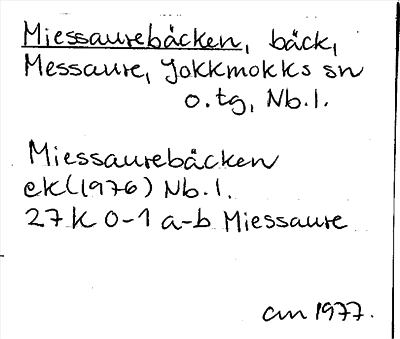 Miessaurebäcken, bäck,
Messaure, Jokkmokks sn
o. tg, Nb. l.
Miessaurebäcken
ek (1976) Nb. l.
27 K 0-1 a-b Miessaure
am 1977.